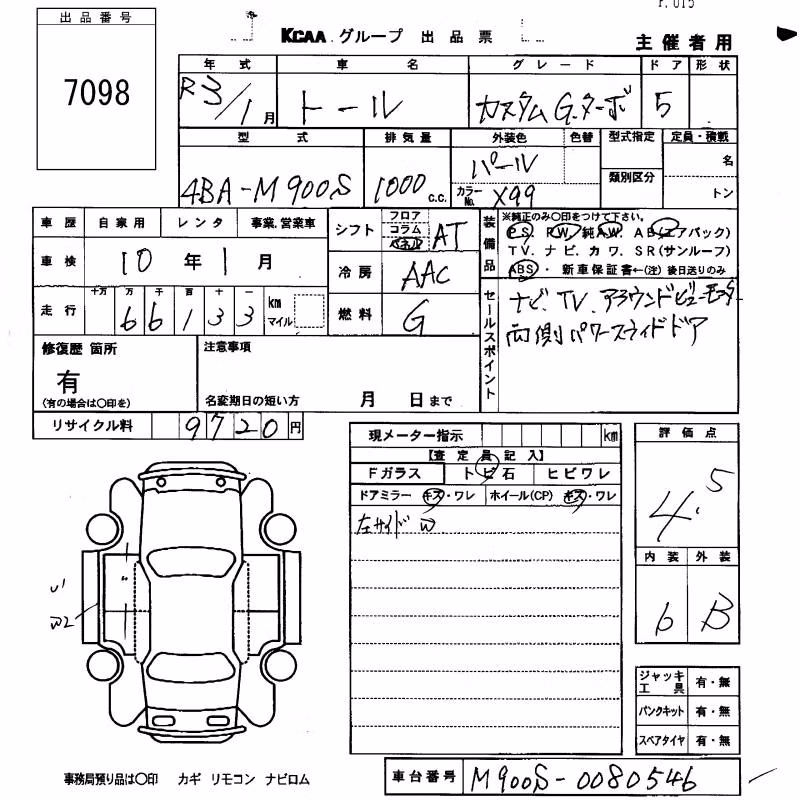 r.015
出品番号
7098
KCAA グループ 出品票
主催者用
年式 車名 グレード ドア 形状
R3/1月 トール カスタムG.ターボ 5
型式 排気量 外装色 色替 型式指定 定員・積載
4BA-M900S 1000c.c. パール 類別区分 名
カラーNo. X99 トン
車歴 自家用 レンタ 事業.営業車
車検 10年1月
走行 十万 万 千 百 十 一 km マイル
66133
シフト フロア コラム パネル AT
冷房 AAC
燃料 G
装備品 ※純正のみ○印をつけて下さい。
PS PW 純AW. AB(エアバック)
TV. ナビ. カワ. SR(サンルーフ)
ABS ・ 新車保証書←(注)後日送りのみ
セールスポイント
ナビ、TV、アラウンドビューモニタ
両側パワースライドドア
修復歴 箇所
有
(有の場合は○印を)
注意事項
名変期日の短い方 月 日まで
リサイクル料 9720円
現メーター指示 km
【査定員記入】
Fガラス トビ石 ヒビワレ
ドアミラー キズ・ワレ ホイール(CP) キズ・ワレ
左サイド W
評価点
4.5
内装 外装
6 B
U1
W2
ジャッキ工具 有・無
パンクキット 有・無
スペアタイヤ 有・無
事務局預り品は○印 カギ リモコン ナビロム
車台番号 M900S-0080546